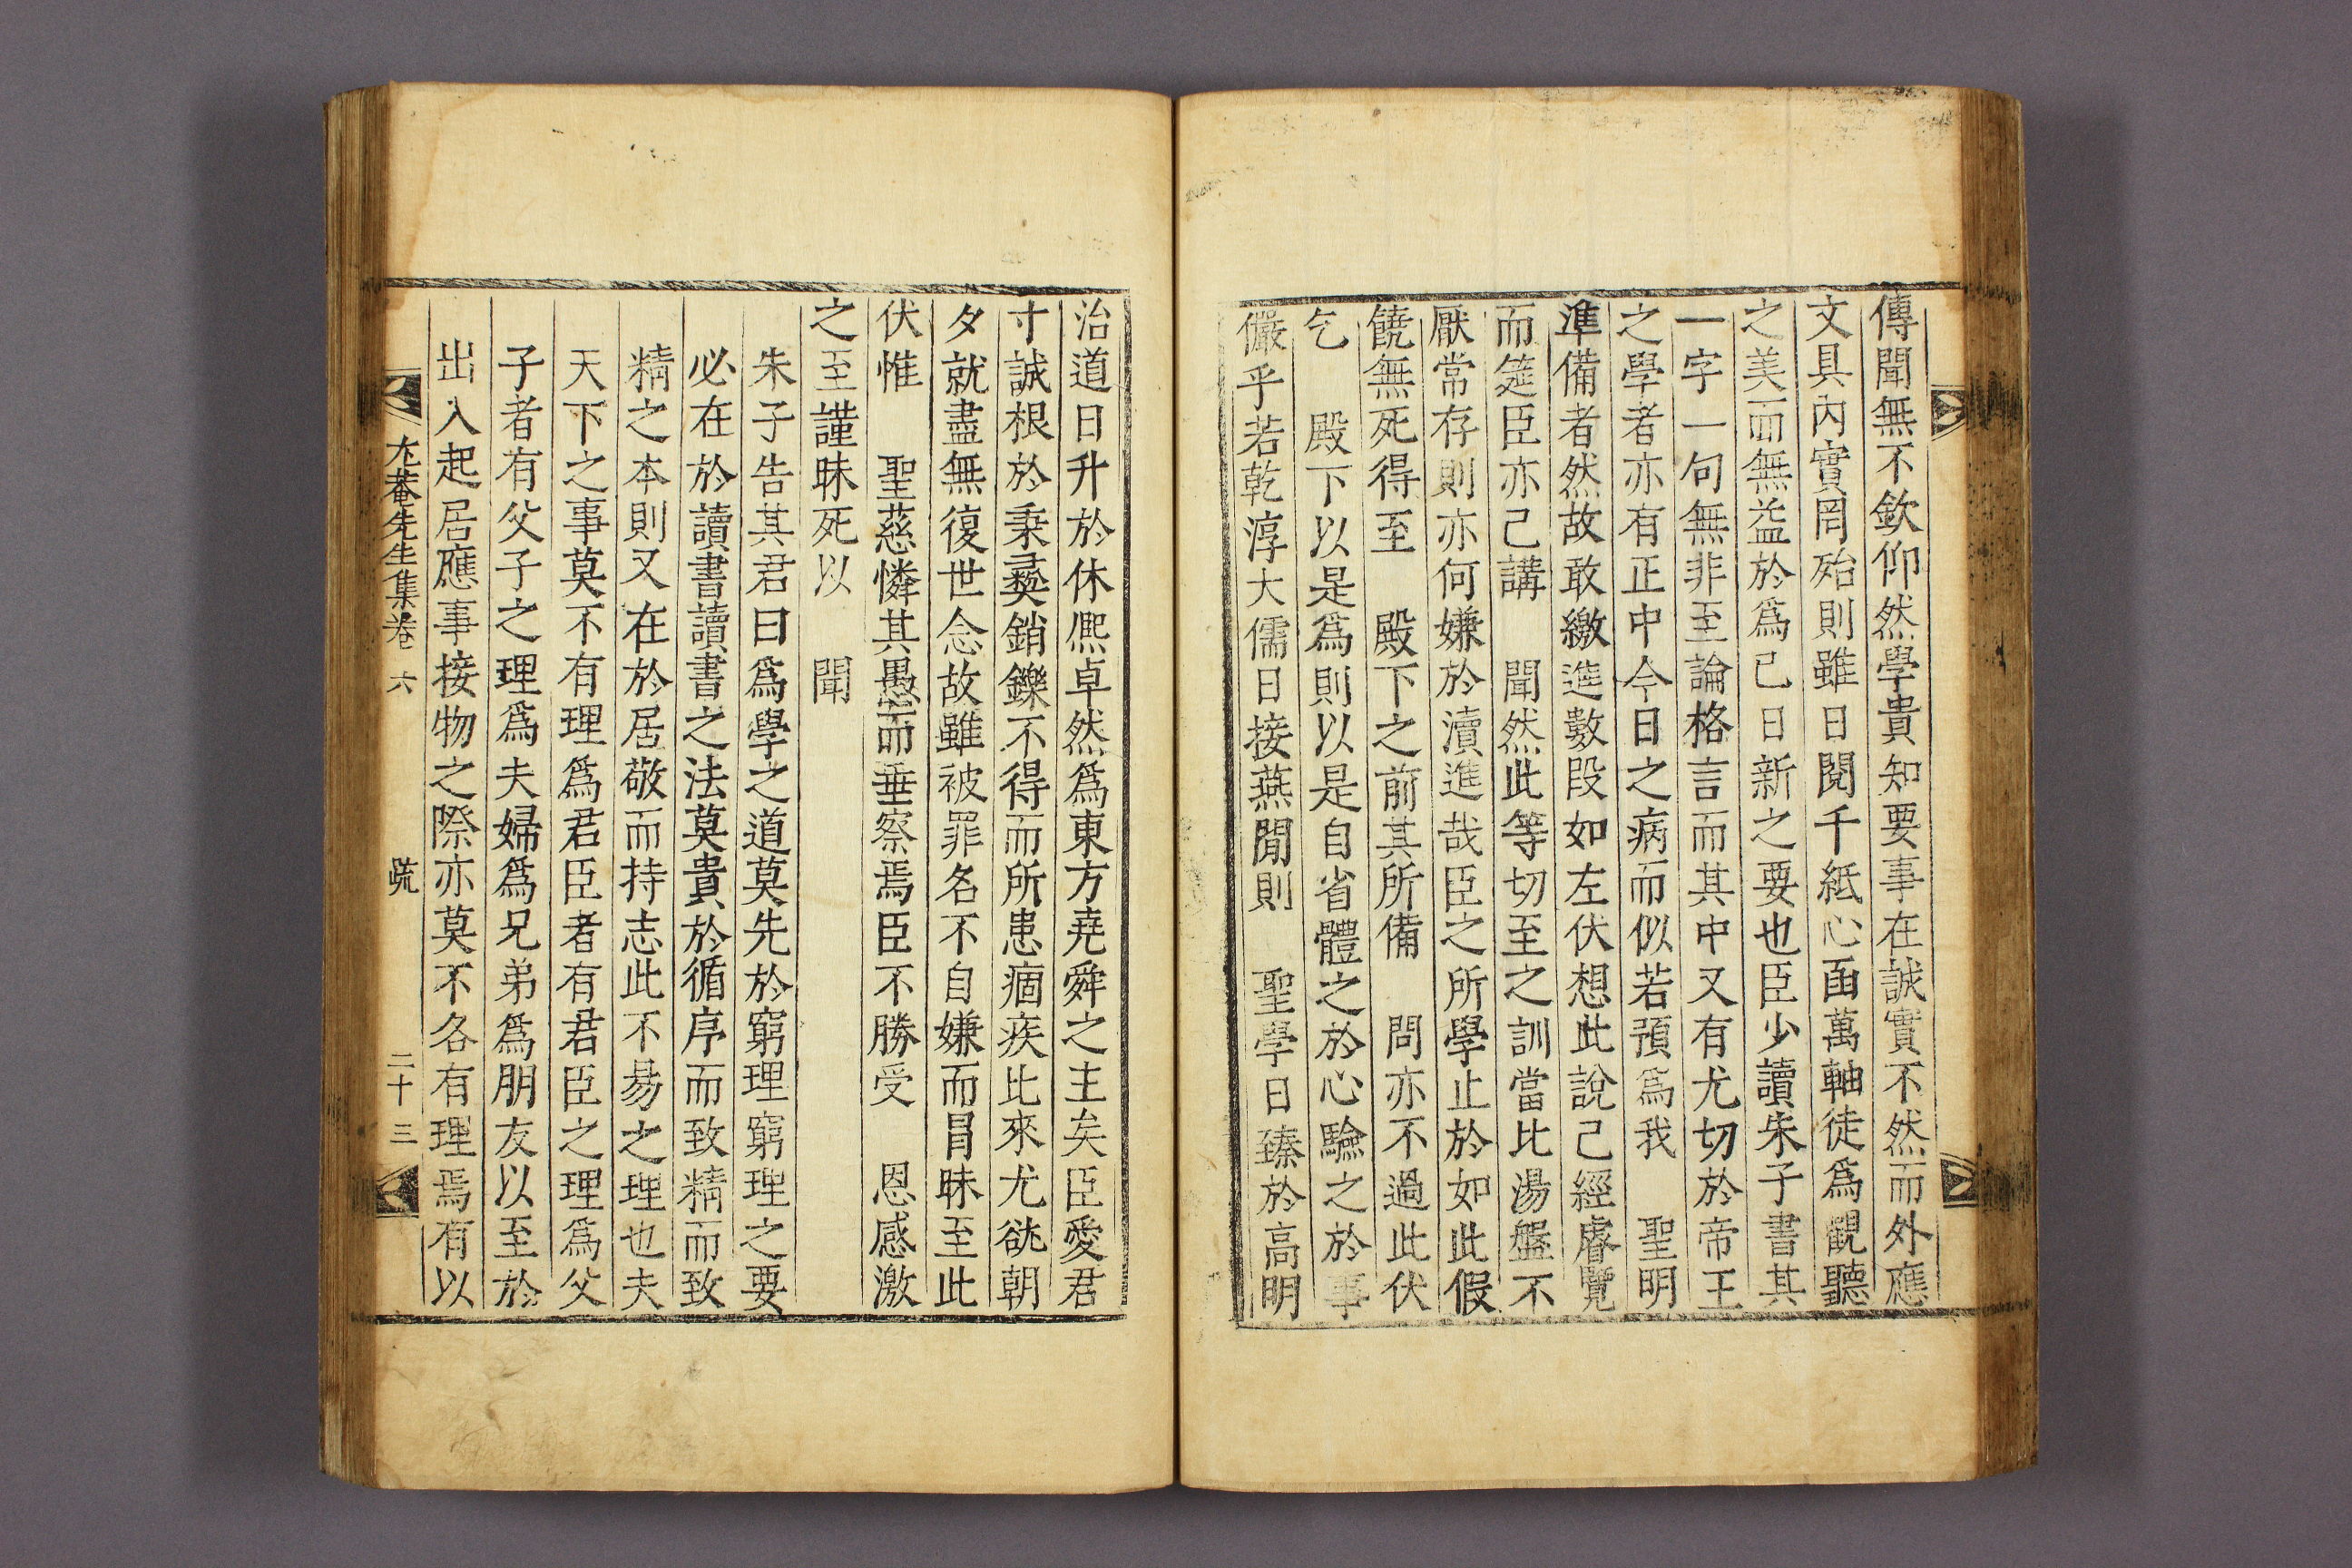 傳聞無不欽仰然學貴知要事在誠實不然而外應
文具內實罔殆則雖日閱千紙心函萬軸徒爲觀聽
之美而無益於爲己日新之要也臣少讀朱子書其
一字一句無非至論格言而其中又有尤切於帝王
之學者亦有正中今日之病而似若預爲我　聖明
準備者然故敢繳進數段如左伏想此說已經睿覽
而筵臣亦已講　聞然此等切至之訓當比湯盤不
厭常存則亦何嫌於瀆進哉臣之所學止於如此假
饒無死得至　殿下之前其所備　問亦不過此伏
乞　殿下以是爲則以是自省體之於心驗之於事
儼乎若乾淳大儒日接燕閒則　聖學日臻於高明
治道日升於休熈卓然爲東方堯舜之主矣臣愛君
寸誠根於秉彛銷鑠不得而所患痼疾比來尤㱡朝
夕就盡無復世念故雖被罪名不自嫌而冒昧至此
伏惟　聖慈憐其愚而垂察焉臣不勝受　恩感激
之至謹昧死以　聞
朱子告其君曰爲學之道莫先於窮理窮理之要
必在於讀書讀書之法莫貴於循序而致精而致
精之本則又在於居敬而持志此不易之理也夫
天下之事莫不有理爲君臣者有君臣之理爲父
子者有父子之理爲夫婦爲兄弟爲朋友以至於
出入起居應事接物之際亦莫不各有理焉有以
尤菴先生集卷六　疏　二十三